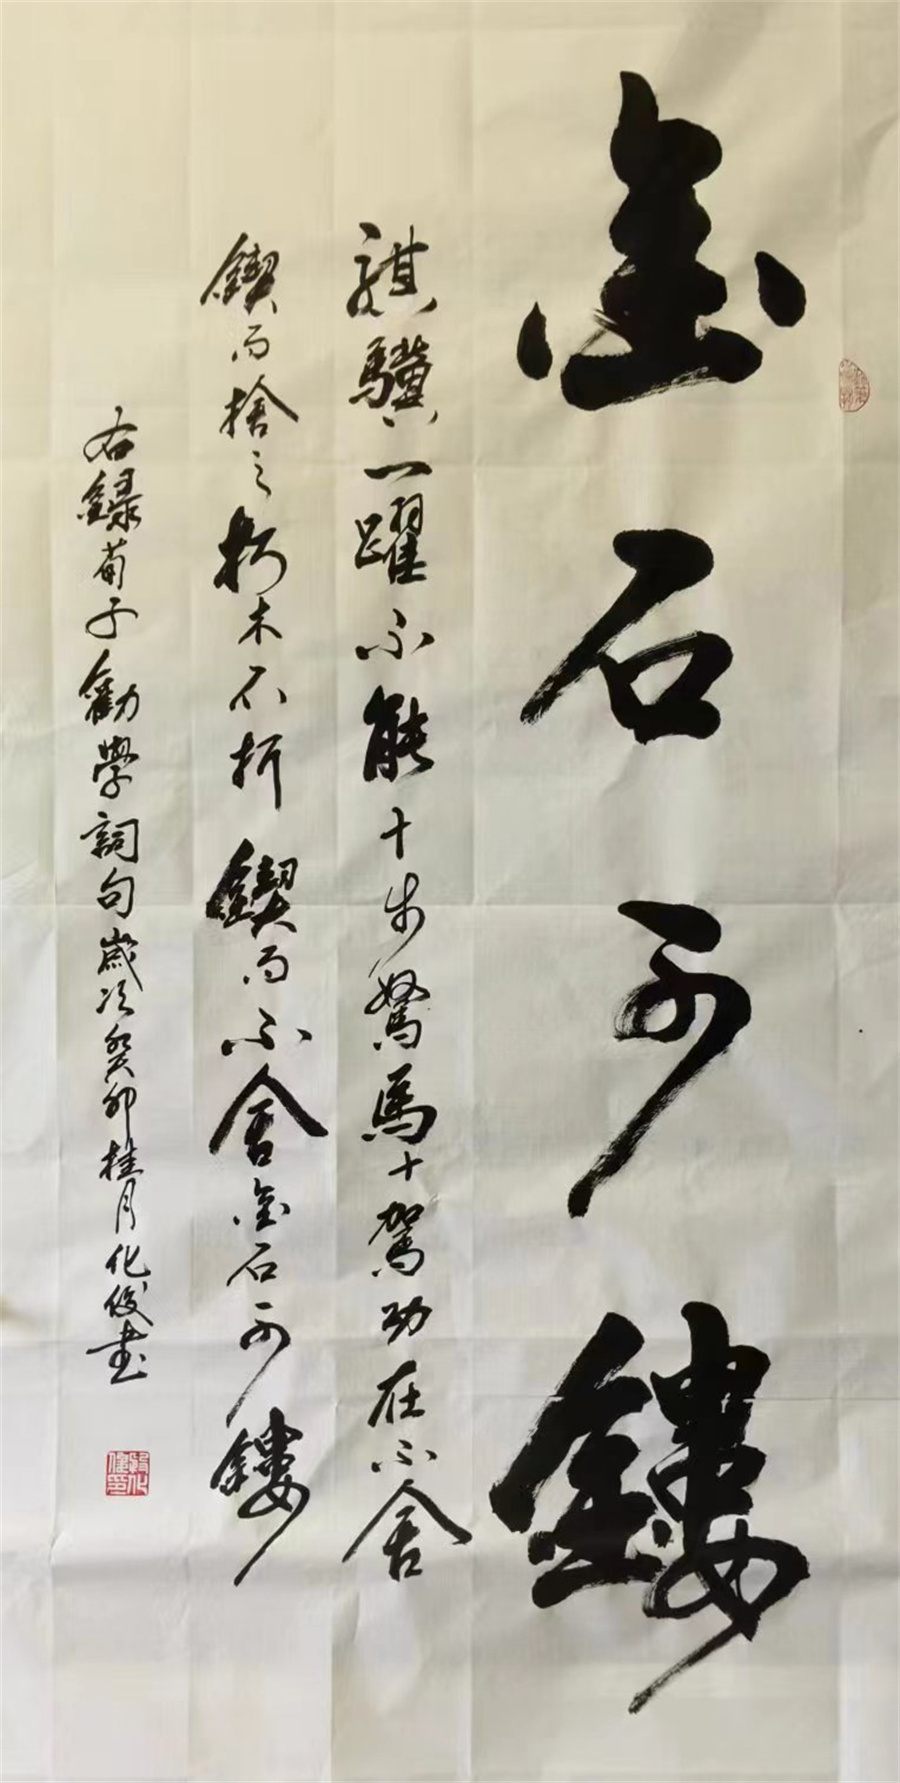 金石可鏤
騏驥一躍不能十步駑馬十駕功在不舍
鍥而捨之朽木不折鍥而不舍金石可鏤
右錄荀子勸學詞句歲次癸卯桂月化俊書